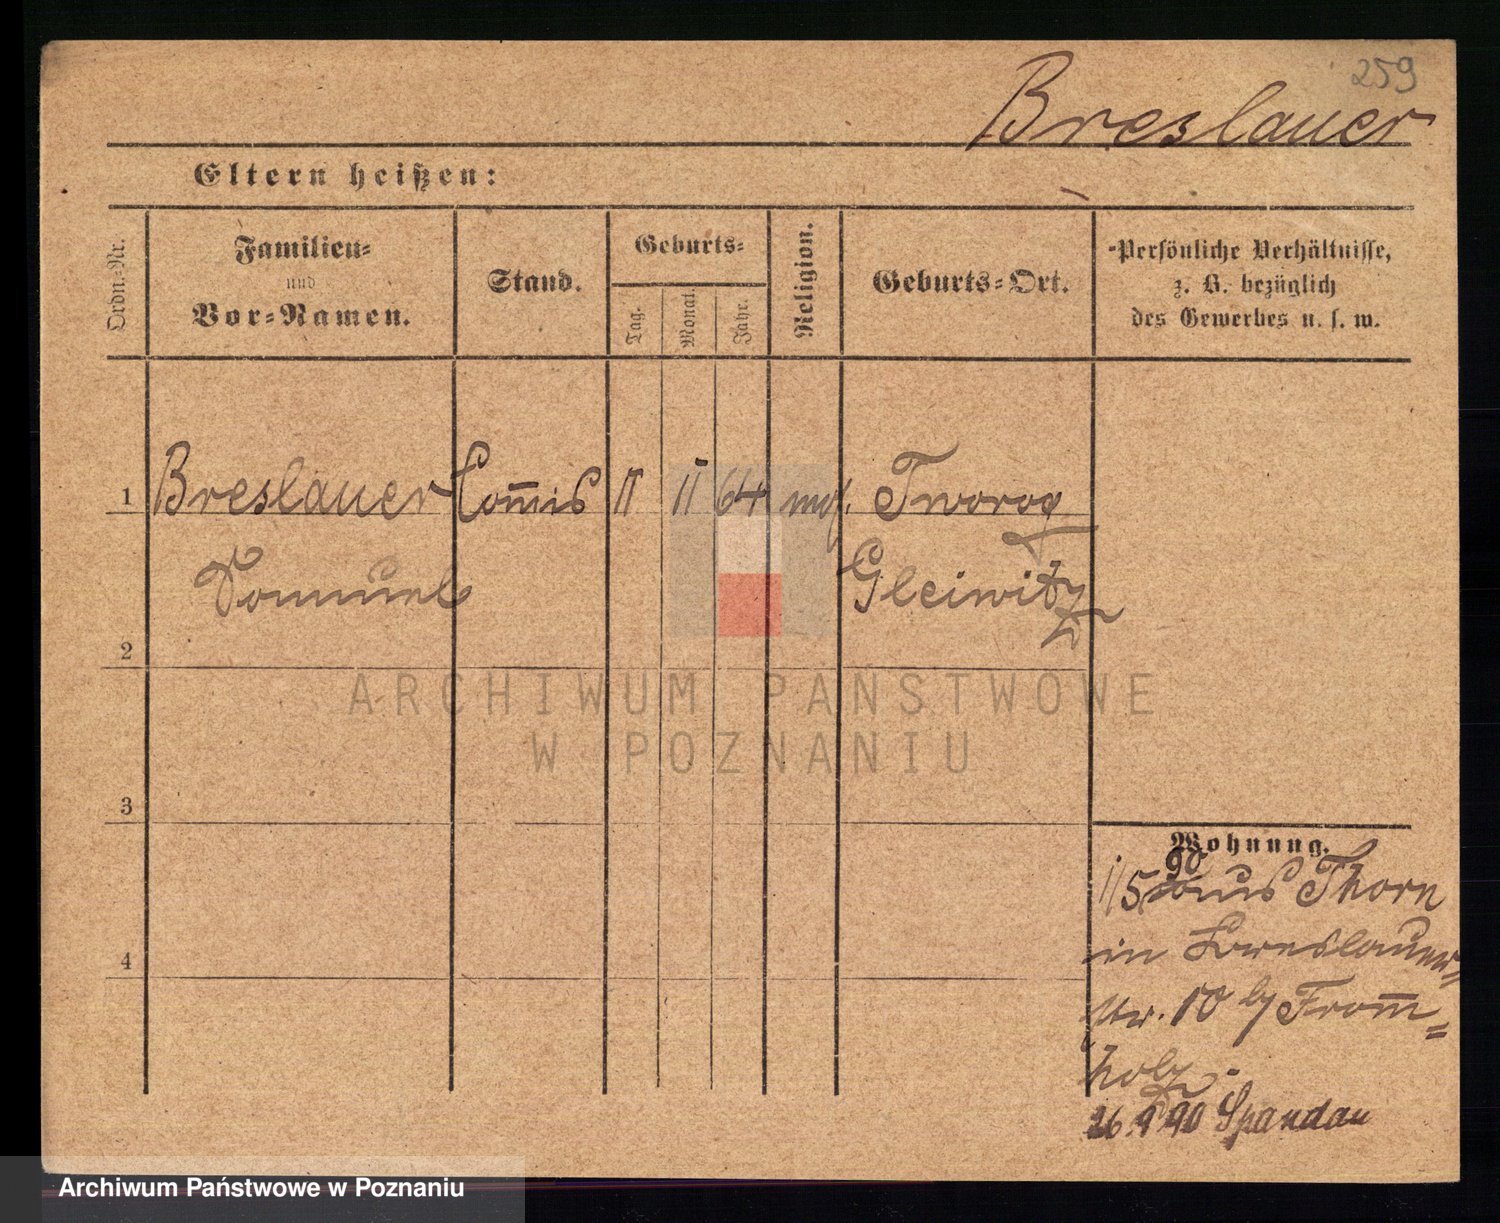 259
Breslauer
Eltern heißen:
Ordn.-Nr.
Familien-
und
Vor-Namen.
Stand.
Geburts-
Tag.
Monat.
Jahr.
Religion.
Geburts-Ort.
Persönliche Verhältnisse,
z. B. bezüglich
des Gewerbes u. s. w.
1 Breslauer Com̅is 11 11 64 mos. Tworog
Samuel Gleiwitz
2
ARCHIWUM PAŃSTWOWE
W POZNANIU
3
Wohnung.
1/5 90 aus Thorn
in Breslauer-
str. 10 by From̅-
holz.
26. 9 90 Spandau
4
Archiwum Państwowe w Poznaniu